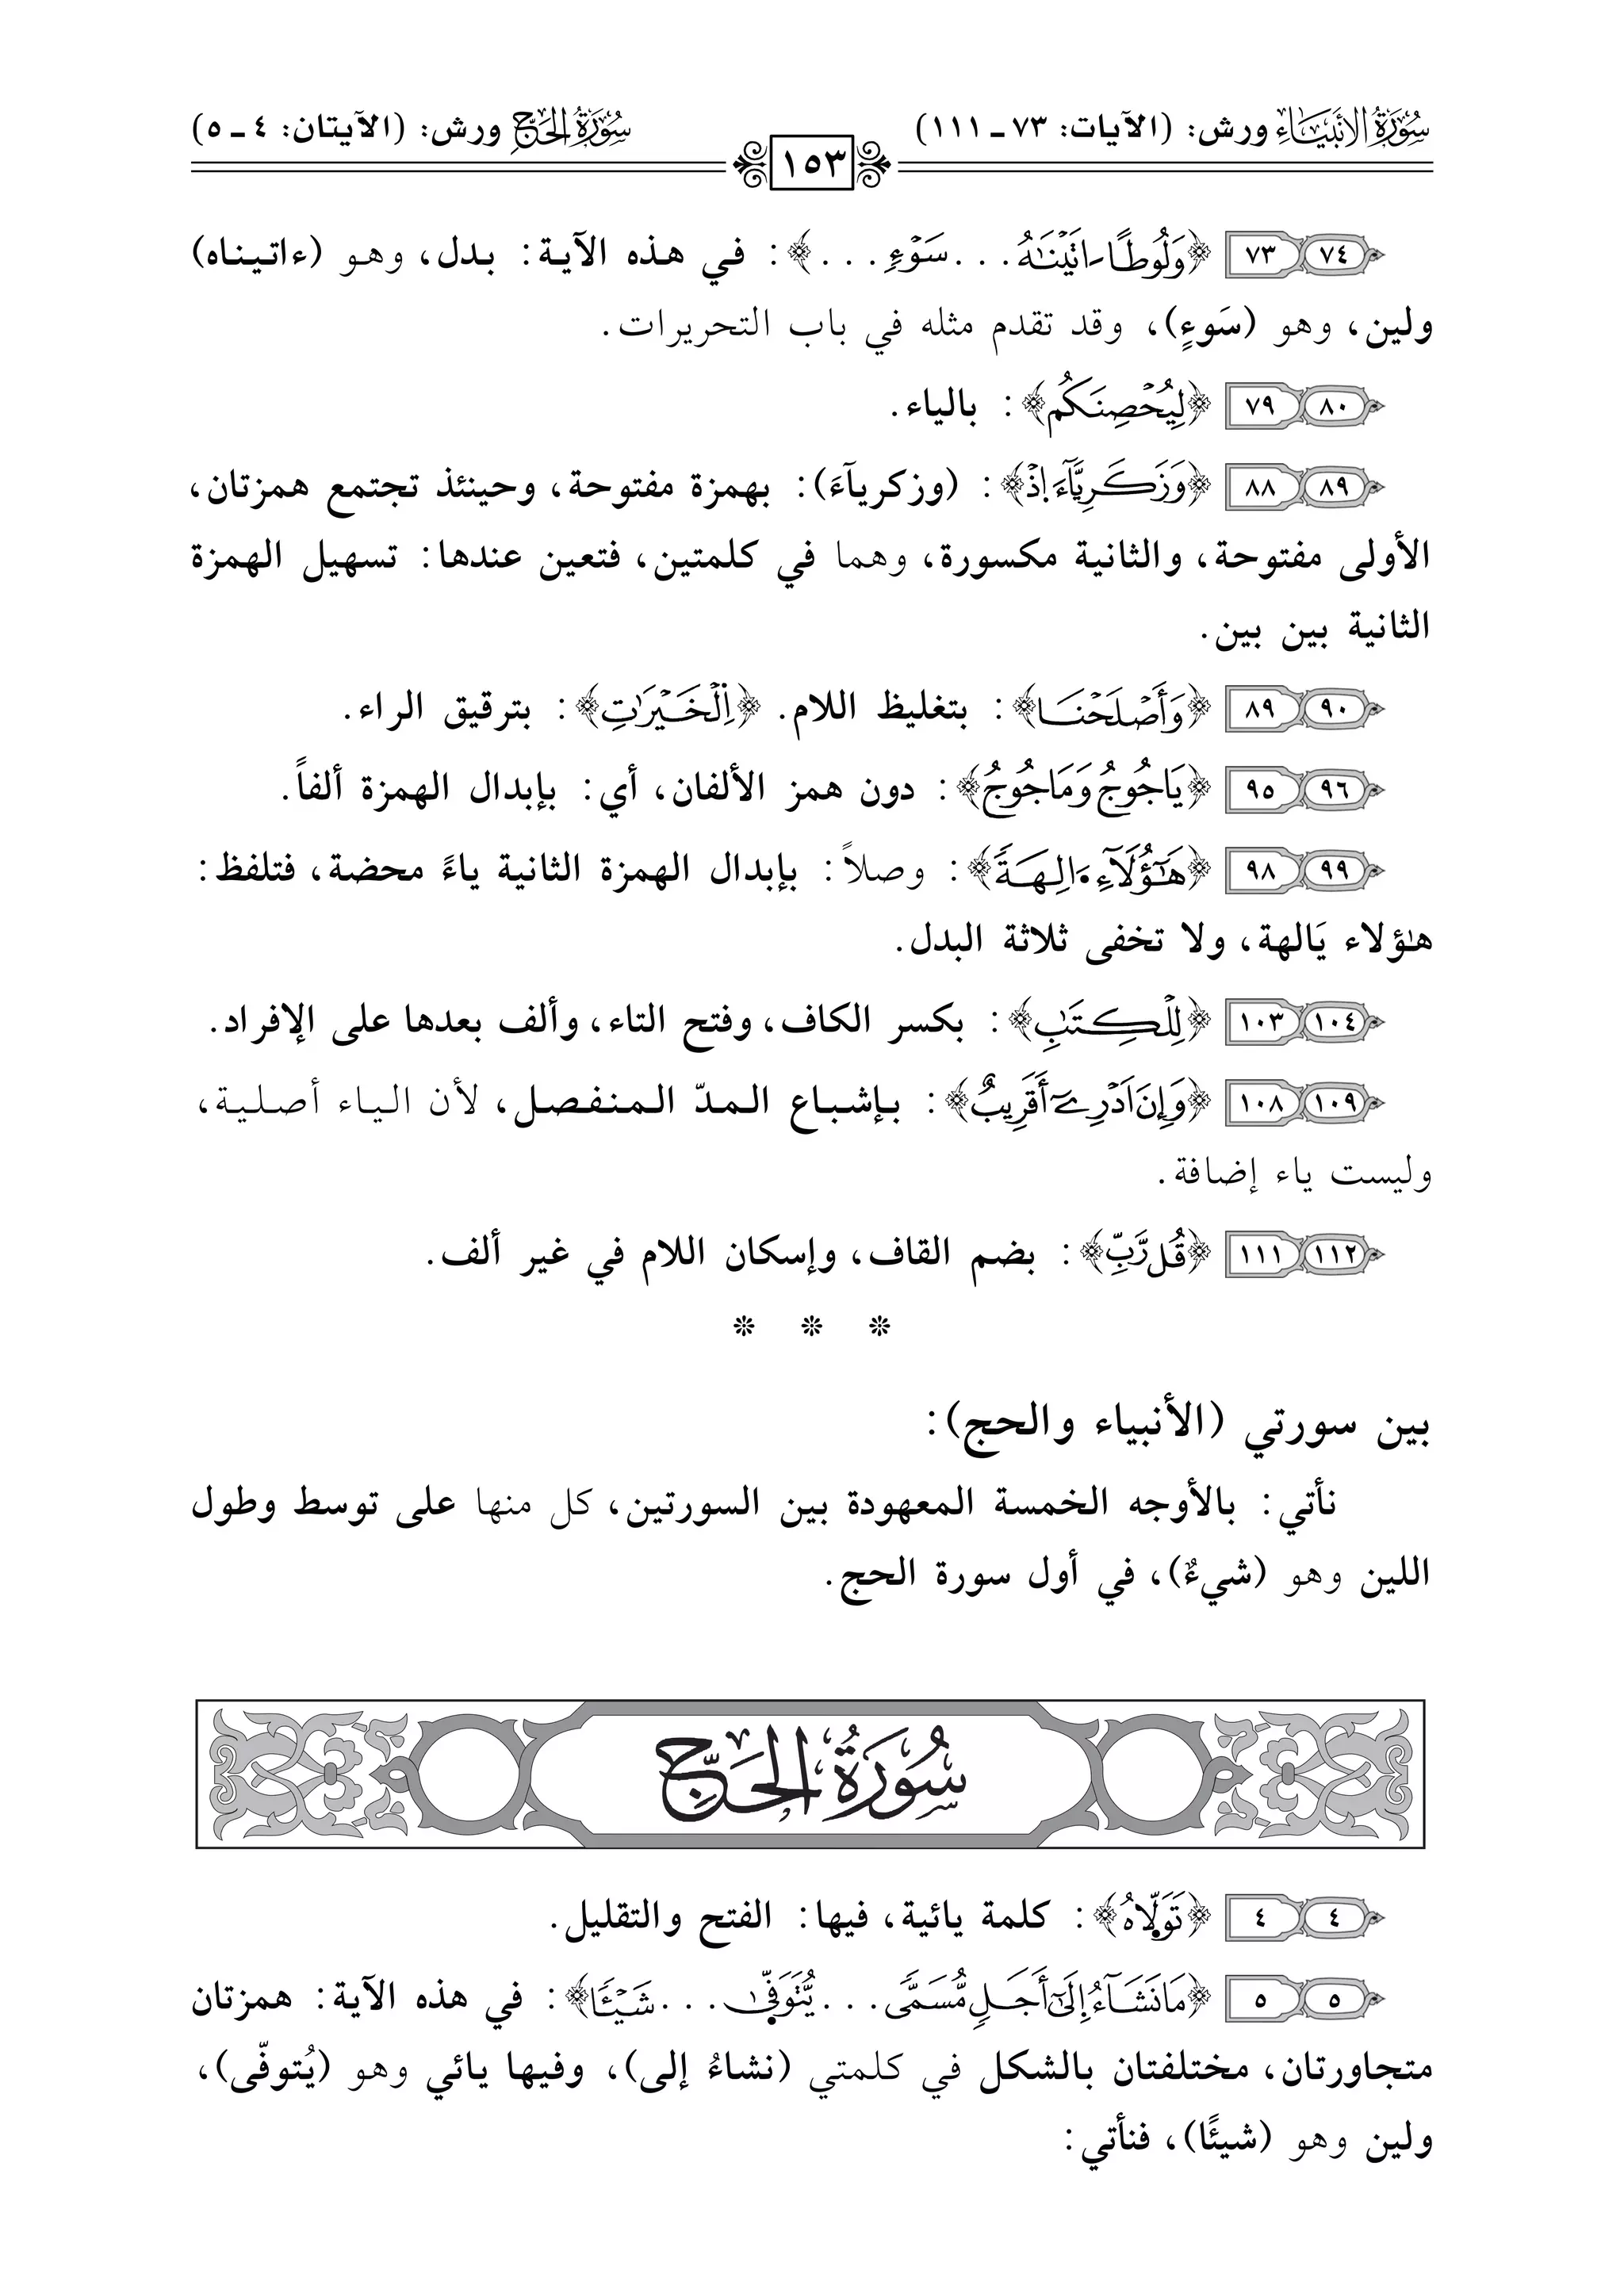 سُورَةُ الأَنبِيَاء ورش: (الآيات: ٧٣ ـ ١١١)
١٥٣
سُورَةُ الحَجِّ ورش: (الآيتان: ٤ ـ ٥)
٧٤ ٧٣ ﴿وَلُوطًا ءَاتَيْنَٰهُ... سَوْءٍ...﴾: في هذه الآية: بدل، وهو (ءاتيناه)
ولين، وهو (سَوءٍ)، وقد تقدم مثله في باب التحريرات.
٨٠ ٧٩ ﴿لِيُحْصِنَكُم﴾: بالياء.
٨٩ ٨٨ ﴿وَزَكَرِيَّآءَ اِ۬ذْ﴾: (وزكريآءَ): بهمزة مفتوحة، وحينئذ تجتمع همزتان،
الأولى مفتوحة، والثانية مكسورة، وهما في كلمتين، فتعين عندها: تسهيل الهمزة
الثانية بين بين.
٩٠ ٨٩ ﴿وَأَصْلَحْنَا﴾: بتغليظ اللام. ﴿اِ۬لْخَيْرَٰتِ﴾: بترقيق الراء.
٩٦ ٩٥ ﴿يَاجُوجُ وَمَاجُوجُ﴾: دون همز الألفان، أي: بإبدال الهمزة ألفاً.
٩٩ ٩٨ ﴿هَٰٓؤُلَآءِ ءَالِهَةً﴾: وصلاً: بإبدال الهمزة الثانية ياءً محضة، فتلفظ:
هٰؤلاء يَالهة، ولا تخفى ثلاثة البدل.
١٠٤ ١٠٣ ﴿لِلْكِتَٰبِ﴾: بكسر الكاف، وفتح التاء، وألف بعدها على الإفراد.
١٠٩ ١٠٨ ﴿وَإِنَ اَدْرِےٓ أَقَرِيبٌ﴾: بإشباع المدّ المنفصل، لأن الياء أصلية،
وليست ياء إضافة.
١١٢ ١١١ ﴿قُل رَّبِّ﴾: بضم القاف، وإسكان اللام في غير ألف.
* * *
بين سورتي (الأنبياء والحج):
نأتي: بالأوجه الخمسة المعهودة بين السورتين، كل منها على توسط وطول
اللين وهو (شيءٌ)، في أول سورة الحج.
سُورَةُ الحَجِّ
٤ ٤ ﴿تَوَلَّاهُ﴾: كلمة يائية، فيها: الفتح والتقليل.
٥ ٥ ﴿مَا نَشَآءُ اِ۪لَىٰٓ أَجَلٍ مُّسَمًّى... يُّتَوَفّ۪ىٰ... شَيْـًٔا﴾: في هذه الآية: همزتان
متجاورتان، مختلفتان بالشكل في كلمتي (نشاءُ إلى)، وفيها يائي وهو (يُتوفّى)،
ولين وهو (شيئًا)، فنأتي: